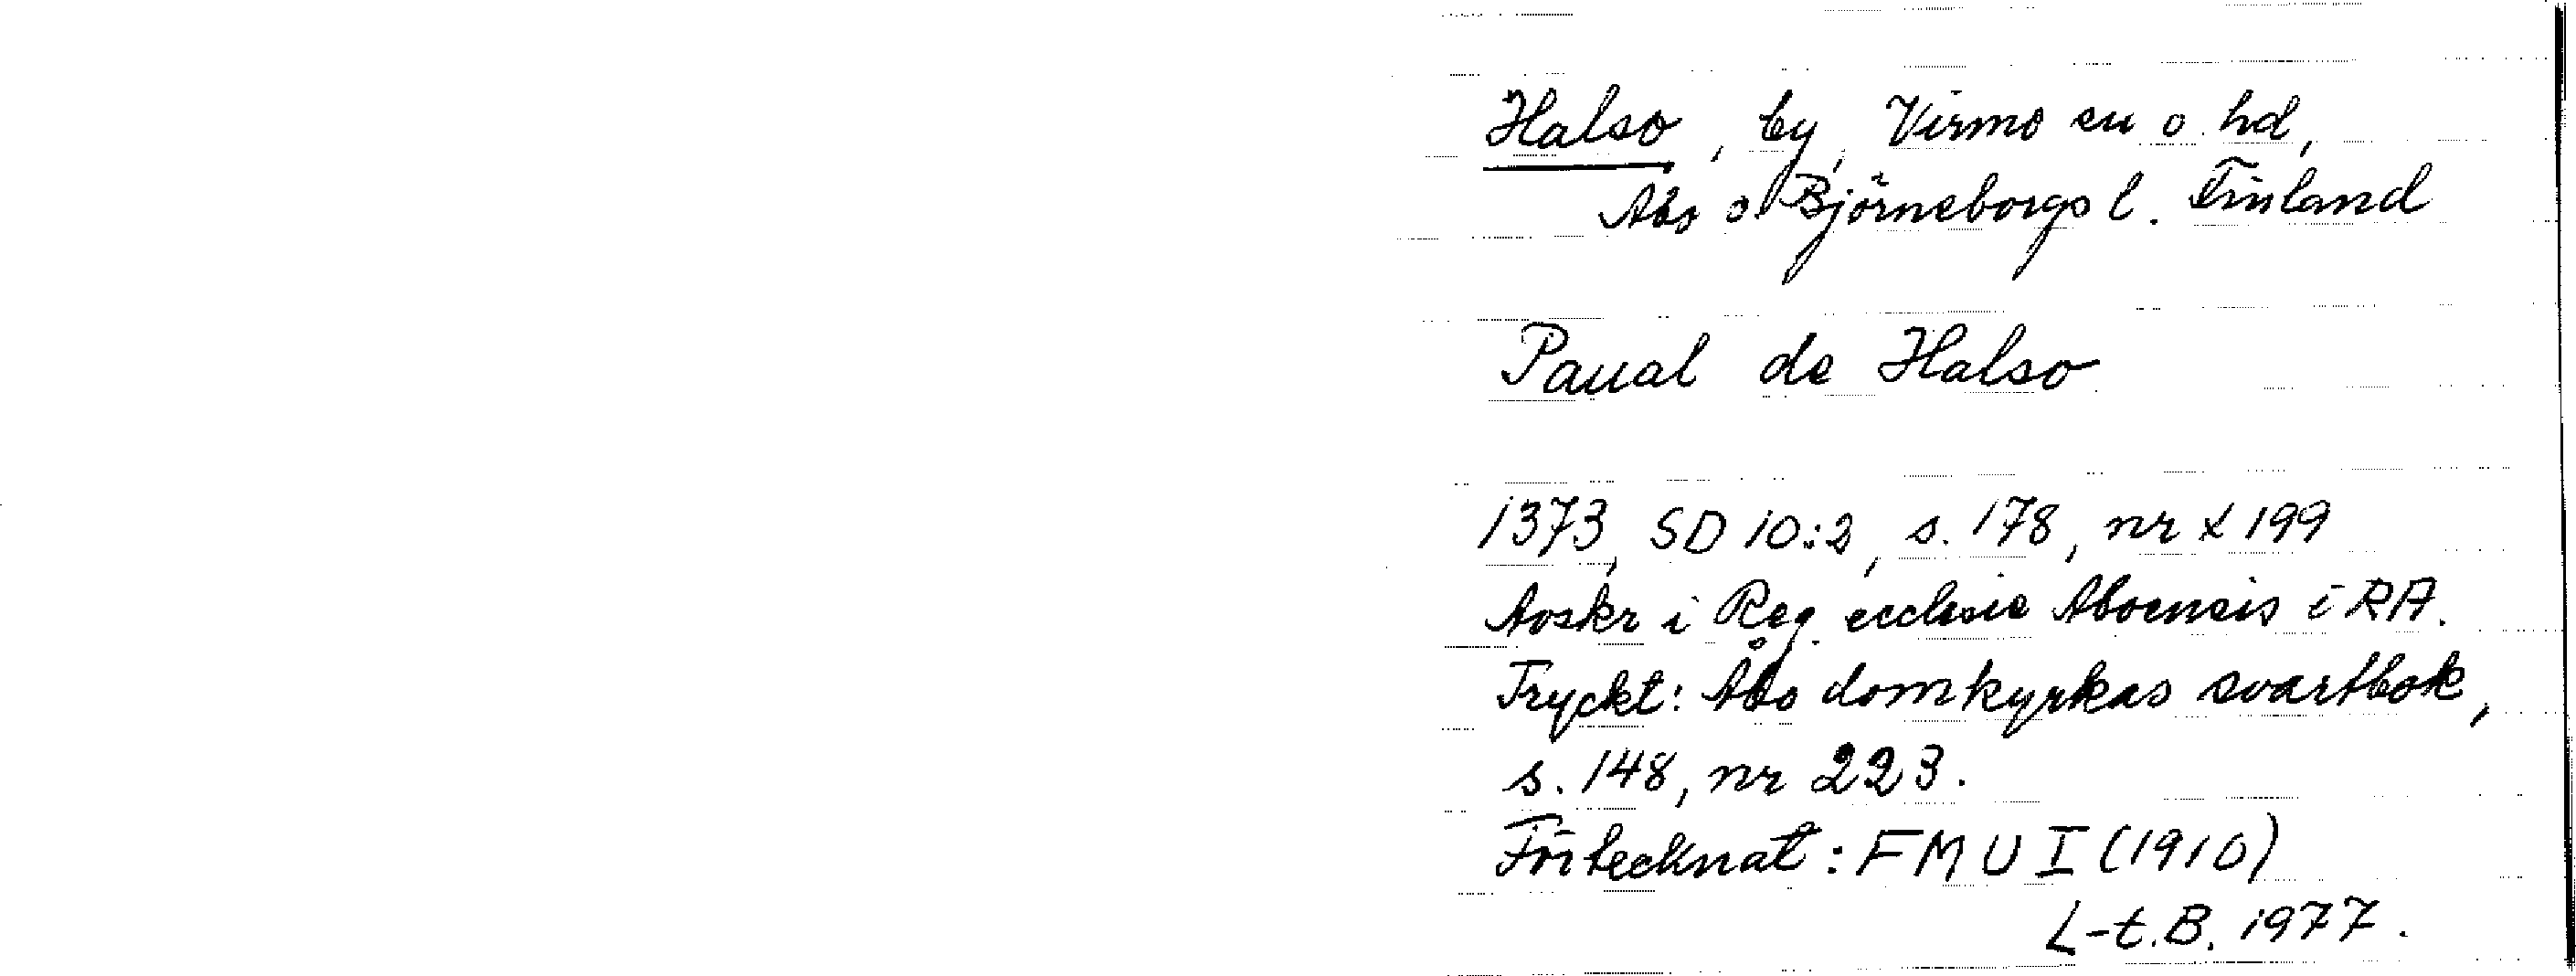 Halso, by, Virmo sn o. hd,
Åbo o. Björneborgs l. Finland
Paual de Halso
1373, SD 10:2, s. 178, nr x 199
Avskr i Reg. ecclesie Aboensis i RA.
Tryckt: Åbo domkyrkas svartbok,
s. 148, nr 223.
Förtecknat: FMU I (1910)
L-t. B. 1977.